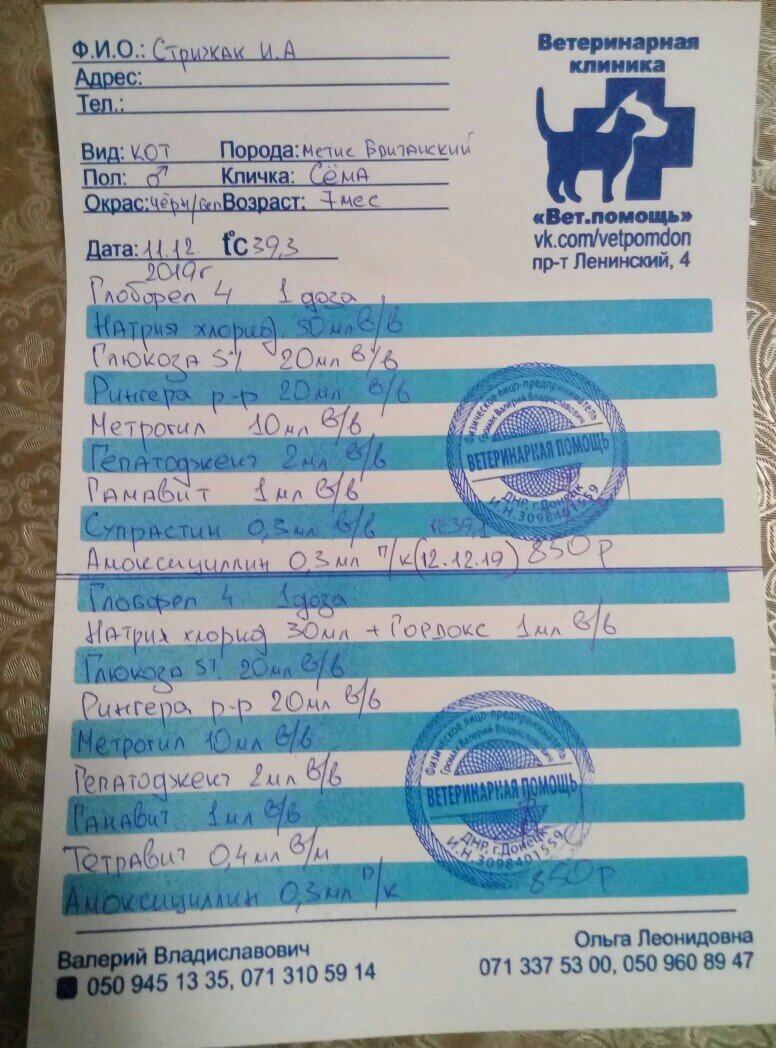 Ф.И.О.: Стрижак И.А
Адрес:
Тел.:
Ветеринарная
клиника
«Вет.помощь»
vk.com/vetpomdon
пр-т Ленинский, 4
Вид: КОТ Порода: метис Британский
Пол: ♂ Кличка: Сёма
Окрас: чёрн/бел Возраст: 7 мес
Дата: 11.12. t°C 39,3
2019г
Глобфел 4 1 доза
Натрия хлорид 50мл в/в
Глюкоза 5% 20мл в/в
Рингера р-р 20мл в/в
Метрогил 10мл в/в
Гепатоджект 2мл в/в
Гамавит 1мл в/в
Супрастин 0,3мл в/в t°39,1
Амоксициллин 0,3мл п/к (12.12.19) 850р
Глобфел 4 1доза
Натрия хлорид 30мл + Гордокс 1мл в/в
Глюкоза 5% 20мл в/в
Рингера р-р 20мл в/в
Метрогил 10мл в/в
Гепатоджект 2мл в/в
Гамавит 1мл в/в
Тетравит 0,4мл в/м
Амоксициллин 0,3мл п/к 850р
Физическое лицо-предприниматель
Громак Валерий Владиславович
ВЕТЕРИНАРНАЯ ПОМОЩЬ
ДНР, г.Донецк
И.Н. 3098401559
Физическое лицо-предприниматель
Громак Валерий Владиславович
ВЕТЕРИНАРНАЯ ПОМОЩЬ
ДНР, г.Донецк
И.Н. 3098401559
Валерий Владиславович
050 945 13 35, 071 310 59 14
Ольга Леонидовна
071 337 53 00, 050 960 89 47